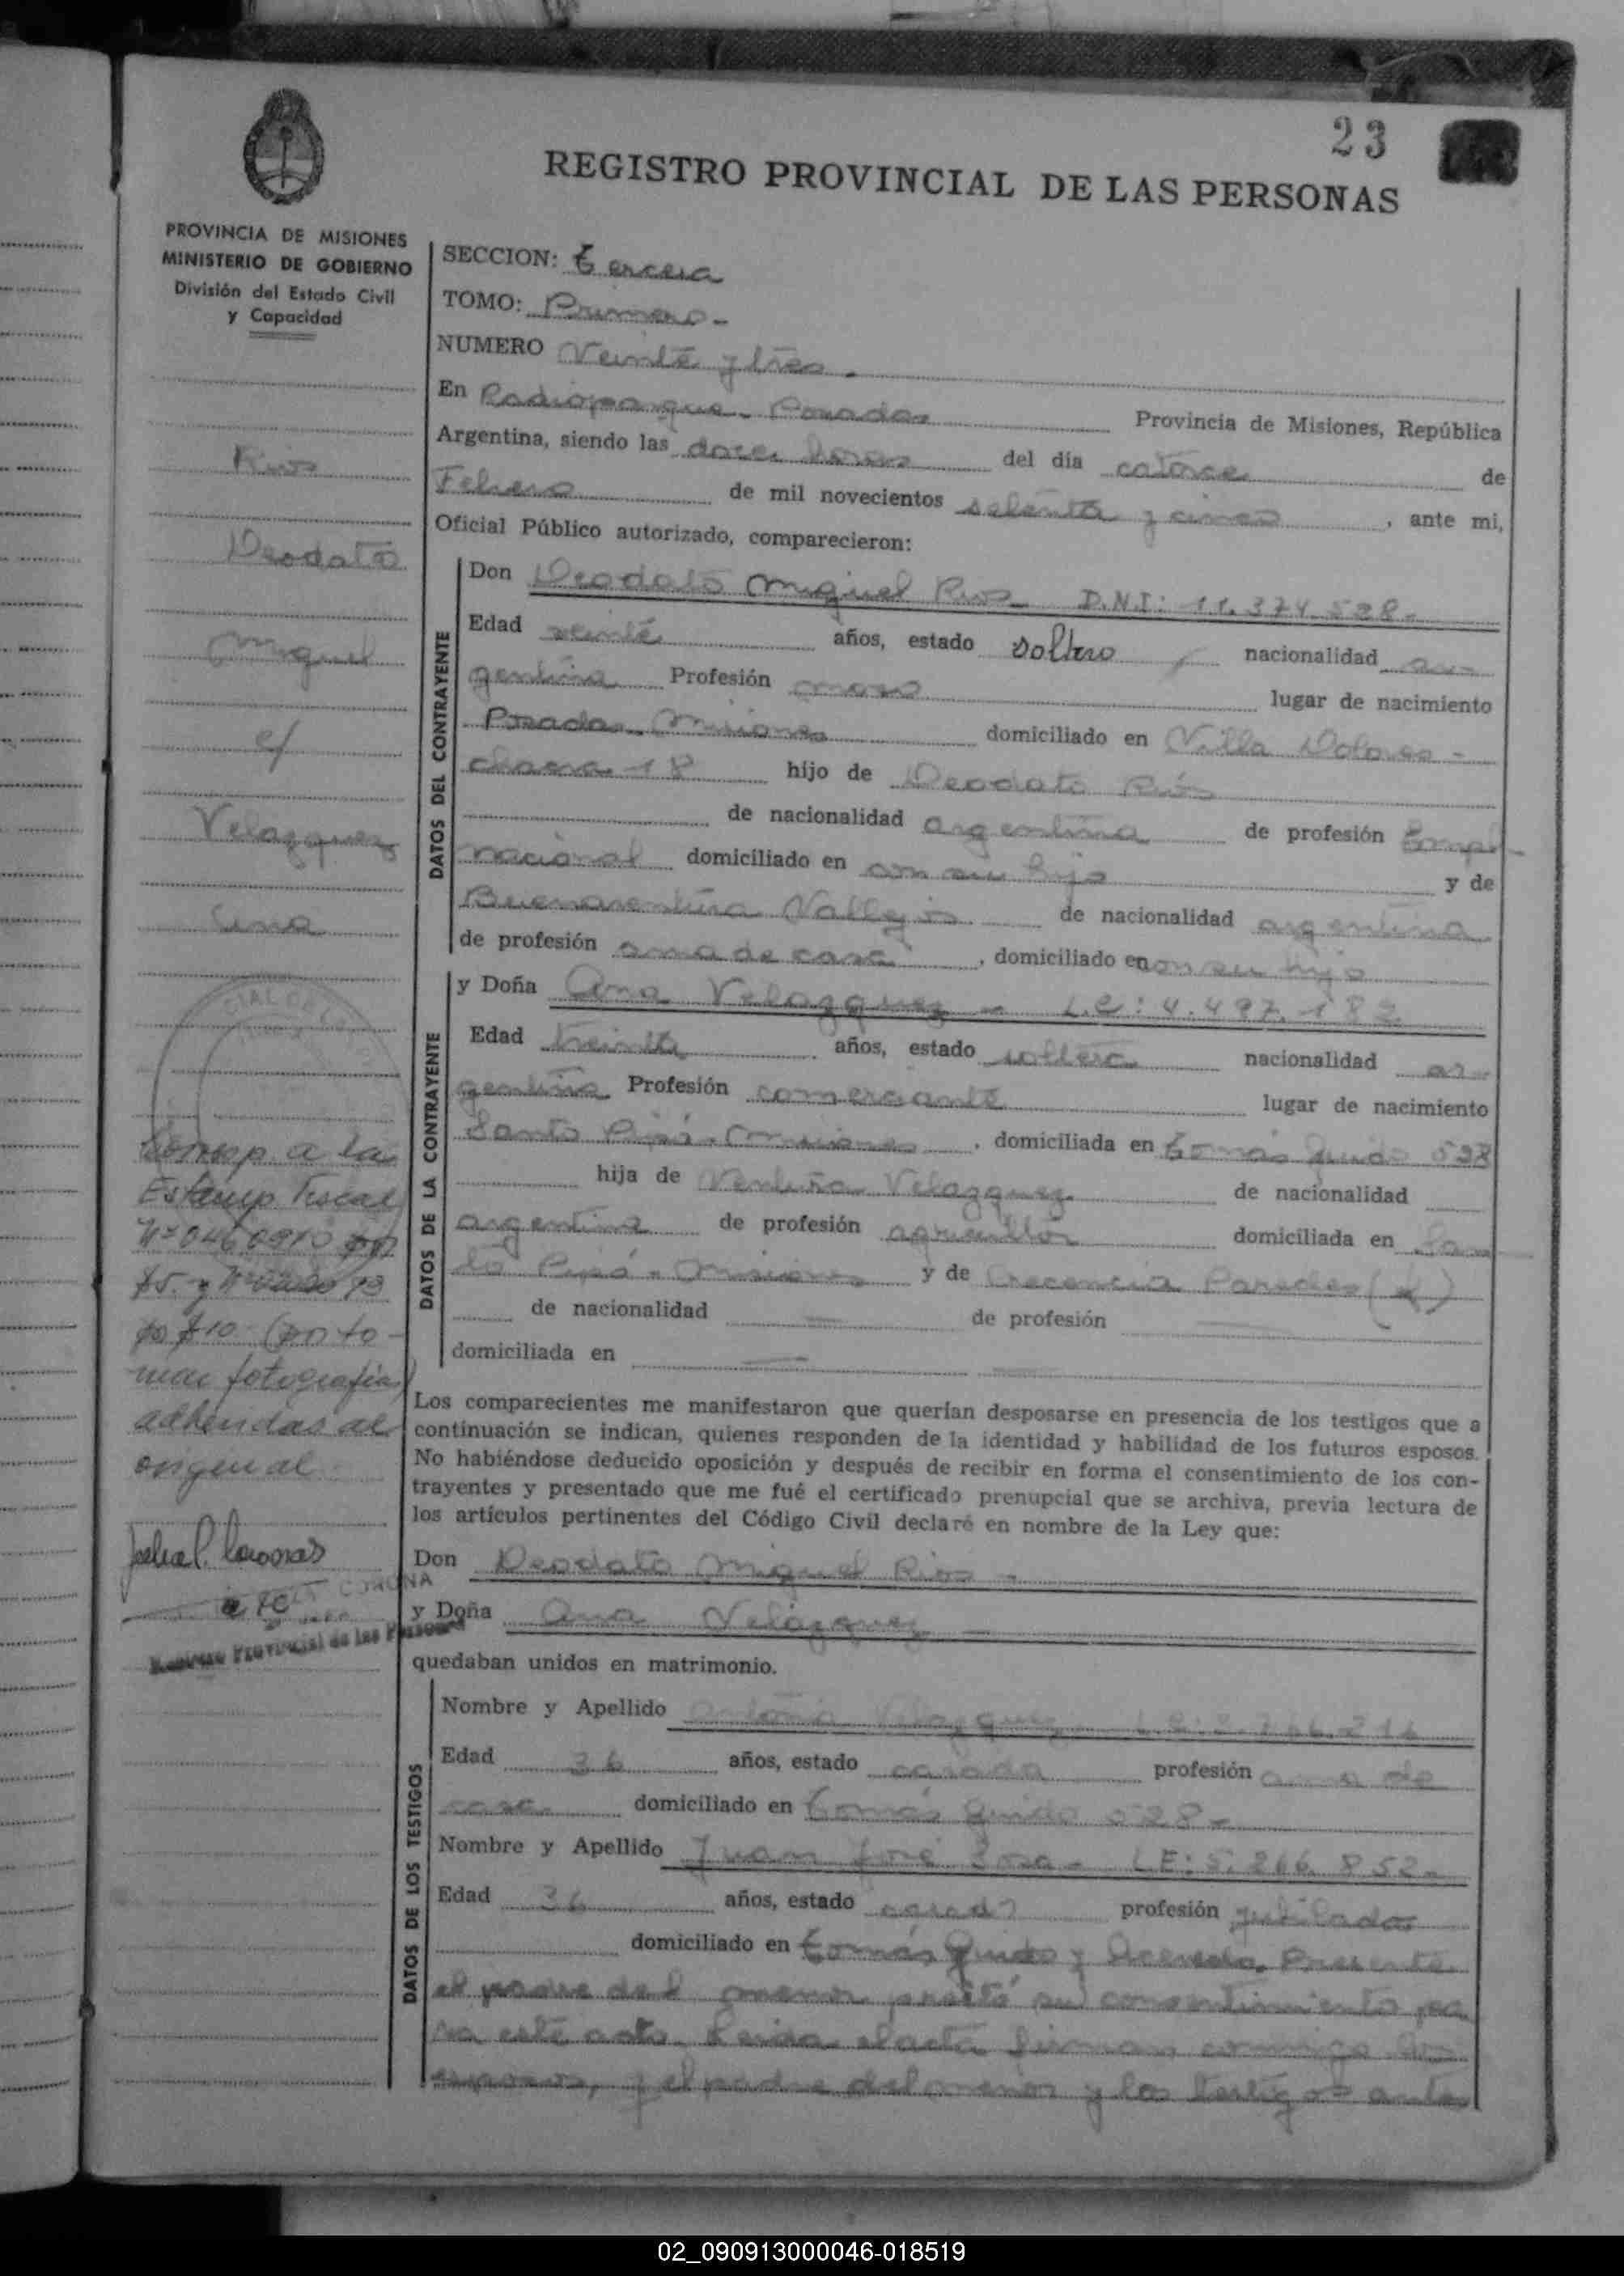 23
REGISTRO PROVINCIAL DE LAS PERSONAS
PROVINCIA DE MISIONES
MINISTERIO DE GOBIERNO
División del Estado Civil
y Capacidad
SECCION: Tercera
TOMO: Primero -
NUMERO Veinte y tres .
En Radioparque - Posadas Provincia de Misiones, República
Argentina, siendo las doce horas del día catorce de
Febrero de mil novecientos setenta y cinco , ante mi,
Oficial Público autorizado, comparecieron:
Rios
Deodato
Miguel
c/
Velazquez
DATOS DEL CONTRAYENTE
Don Deodato Miguel Rios - D.N.I: 11.374.528 -
Edad veinte años, estado soltero nacionalidad ar-
gentina Profesión mozo lugar de nacimiento
Posadas - Misiones domiciliado en Villa Dolores -
chacra 18 hijo de Deodato Ríos
de nacionalidad argentina de profesión Empl-
nacional domiciliado en con su hijo y de
Buenaventura Vallejos de nacionalidad argentina
de profesión ama de casa , domiciliado en con su hijo
DATOS DE LA CONTRAYENTE
y Doña Ana Velazquez - L.C: 4.497.183
Edad treinta años, estado soltera nacionalidad ar-
gentina Profesión comerciante lugar de nacimiento
Santo Pipó - Misiones , domiciliada en Tomás Guido 528
hija de Ventura Velazquez de nacionalidad
argentina de profesión agricultor domiciliada en San
to Pipó - Misiones y de Crecencia Paredes
de nacionalidad — de profesión —
domiciliada en —
Corresp. a la
Estamp. Fiscal
$5. y
$10
mar fotografias)
adheridas al
original
CORONA
Registro Provincial de las Personas
Los comparecientes me manifestaron que querían desposarse en presencia de los testigos que a
continuación se indican, quienes responden de la identidad y habilidad de los futuros esposos.
No habiéndose deducido oposición y después de recibir en forma el consentimiento de los con-
trayentes y presentado que me fué el certificado prenupcial que se archiva, previa lectura de
los artículos pertinentes del Código Civil declaré en nombre de la Ley que:
Don Deodato Miguel Rios -
y Doña Ana Velazquez —
quedaban unidos en matrimonio.
DATOS DE LOS TESTIGOS
Nombre y Apellido Antonia Velazquez
Edad 36 años, estado casada profesión ama de
casa domiciliado en Tomás Guido 528 -
Nombre y Apellido Juan José Sosa - LE: 5.266.852 -
Edad 36 años, estado casado profesión jubilado
domiciliado en Tomás Guido y Acevedo. Presente
el padre del menor prestó su consentimiento pa
ra este acto. Leida el acta firman conmigo los
esposos, y el padre del menor y los testigos antes
02_090913000046-018519